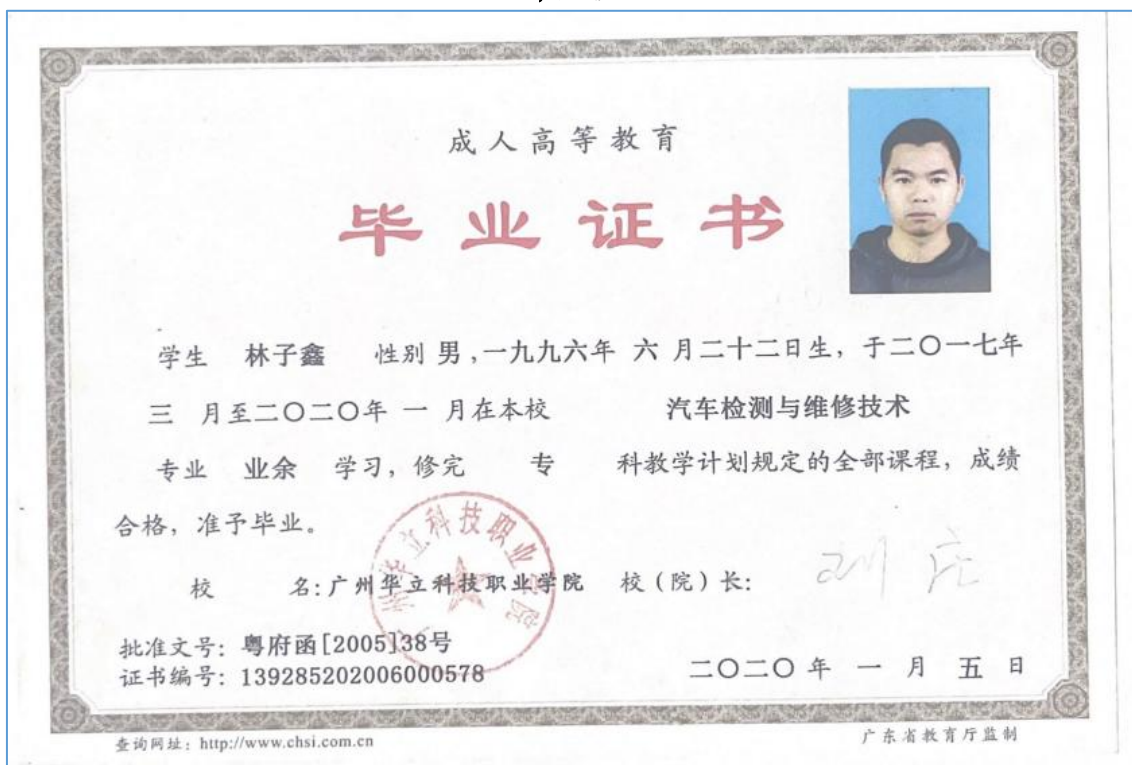 成人高等教育
毕业证书
学生 林子鑫 性别 男,一九九六年 六 月二十二日生，于二〇一七年
三 月至二〇二〇年 一 月在本校 汽车检测与维修技术
专业 业余 学习，修完 专 科教学计划规定的全部课程，成绩
合格，准予毕业。
广州华立科技职业学院
校 名:广州华立科技职业学院 校（院）长:
批准文号：粤府函[2005]38号
证书编号：139285202006000578
二〇二〇 年 一 月 五 日
查询网址：http://www.chsi.com.cn
广东省教育厅监制